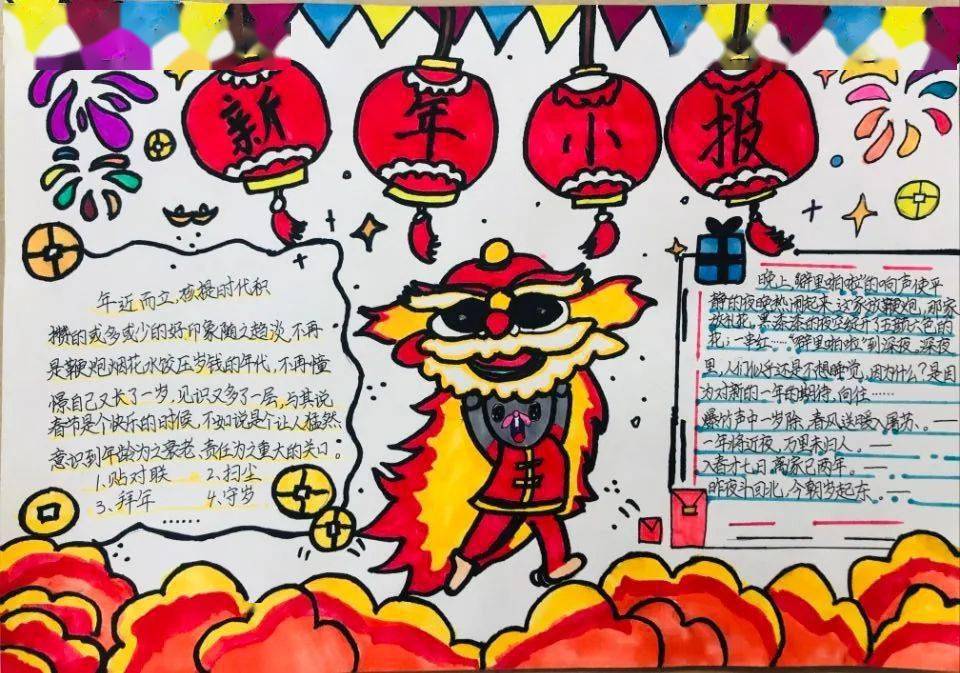 新年小报
年近而立,被授时代积
攒的或多或少的好印象随之趋淡,不再
是鞭炮烟花水饺压岁钱的年代,不再憧
憬自己又长了一岁,见识又多了一层,与其说
春节是个快乐的时候,不如说是个让人猛然
意识到年龄为之衰老、责任为之重大的关口。
1.贴对联 2.扫尘
3、拜年 4.守岁
……
晚上,噼里啪啦的响声使平
静的夜晚热闹起来,这家放鞭炮,那家
放礼花,黑漆漆的夜空绽开了五颜六色的
花;一串红……"噼里啪啦"到深夜。深夜
里,人们似乎还是不想睡觉。因为什么?是因
为对新的一年的期待,向往……
爆竹声中一岁除,春风送暖入屠苏。——
一年将近夜,万里未归人。——
入春才七日,离家已两年。——
昨夜斗回北,今朝岁起东。——